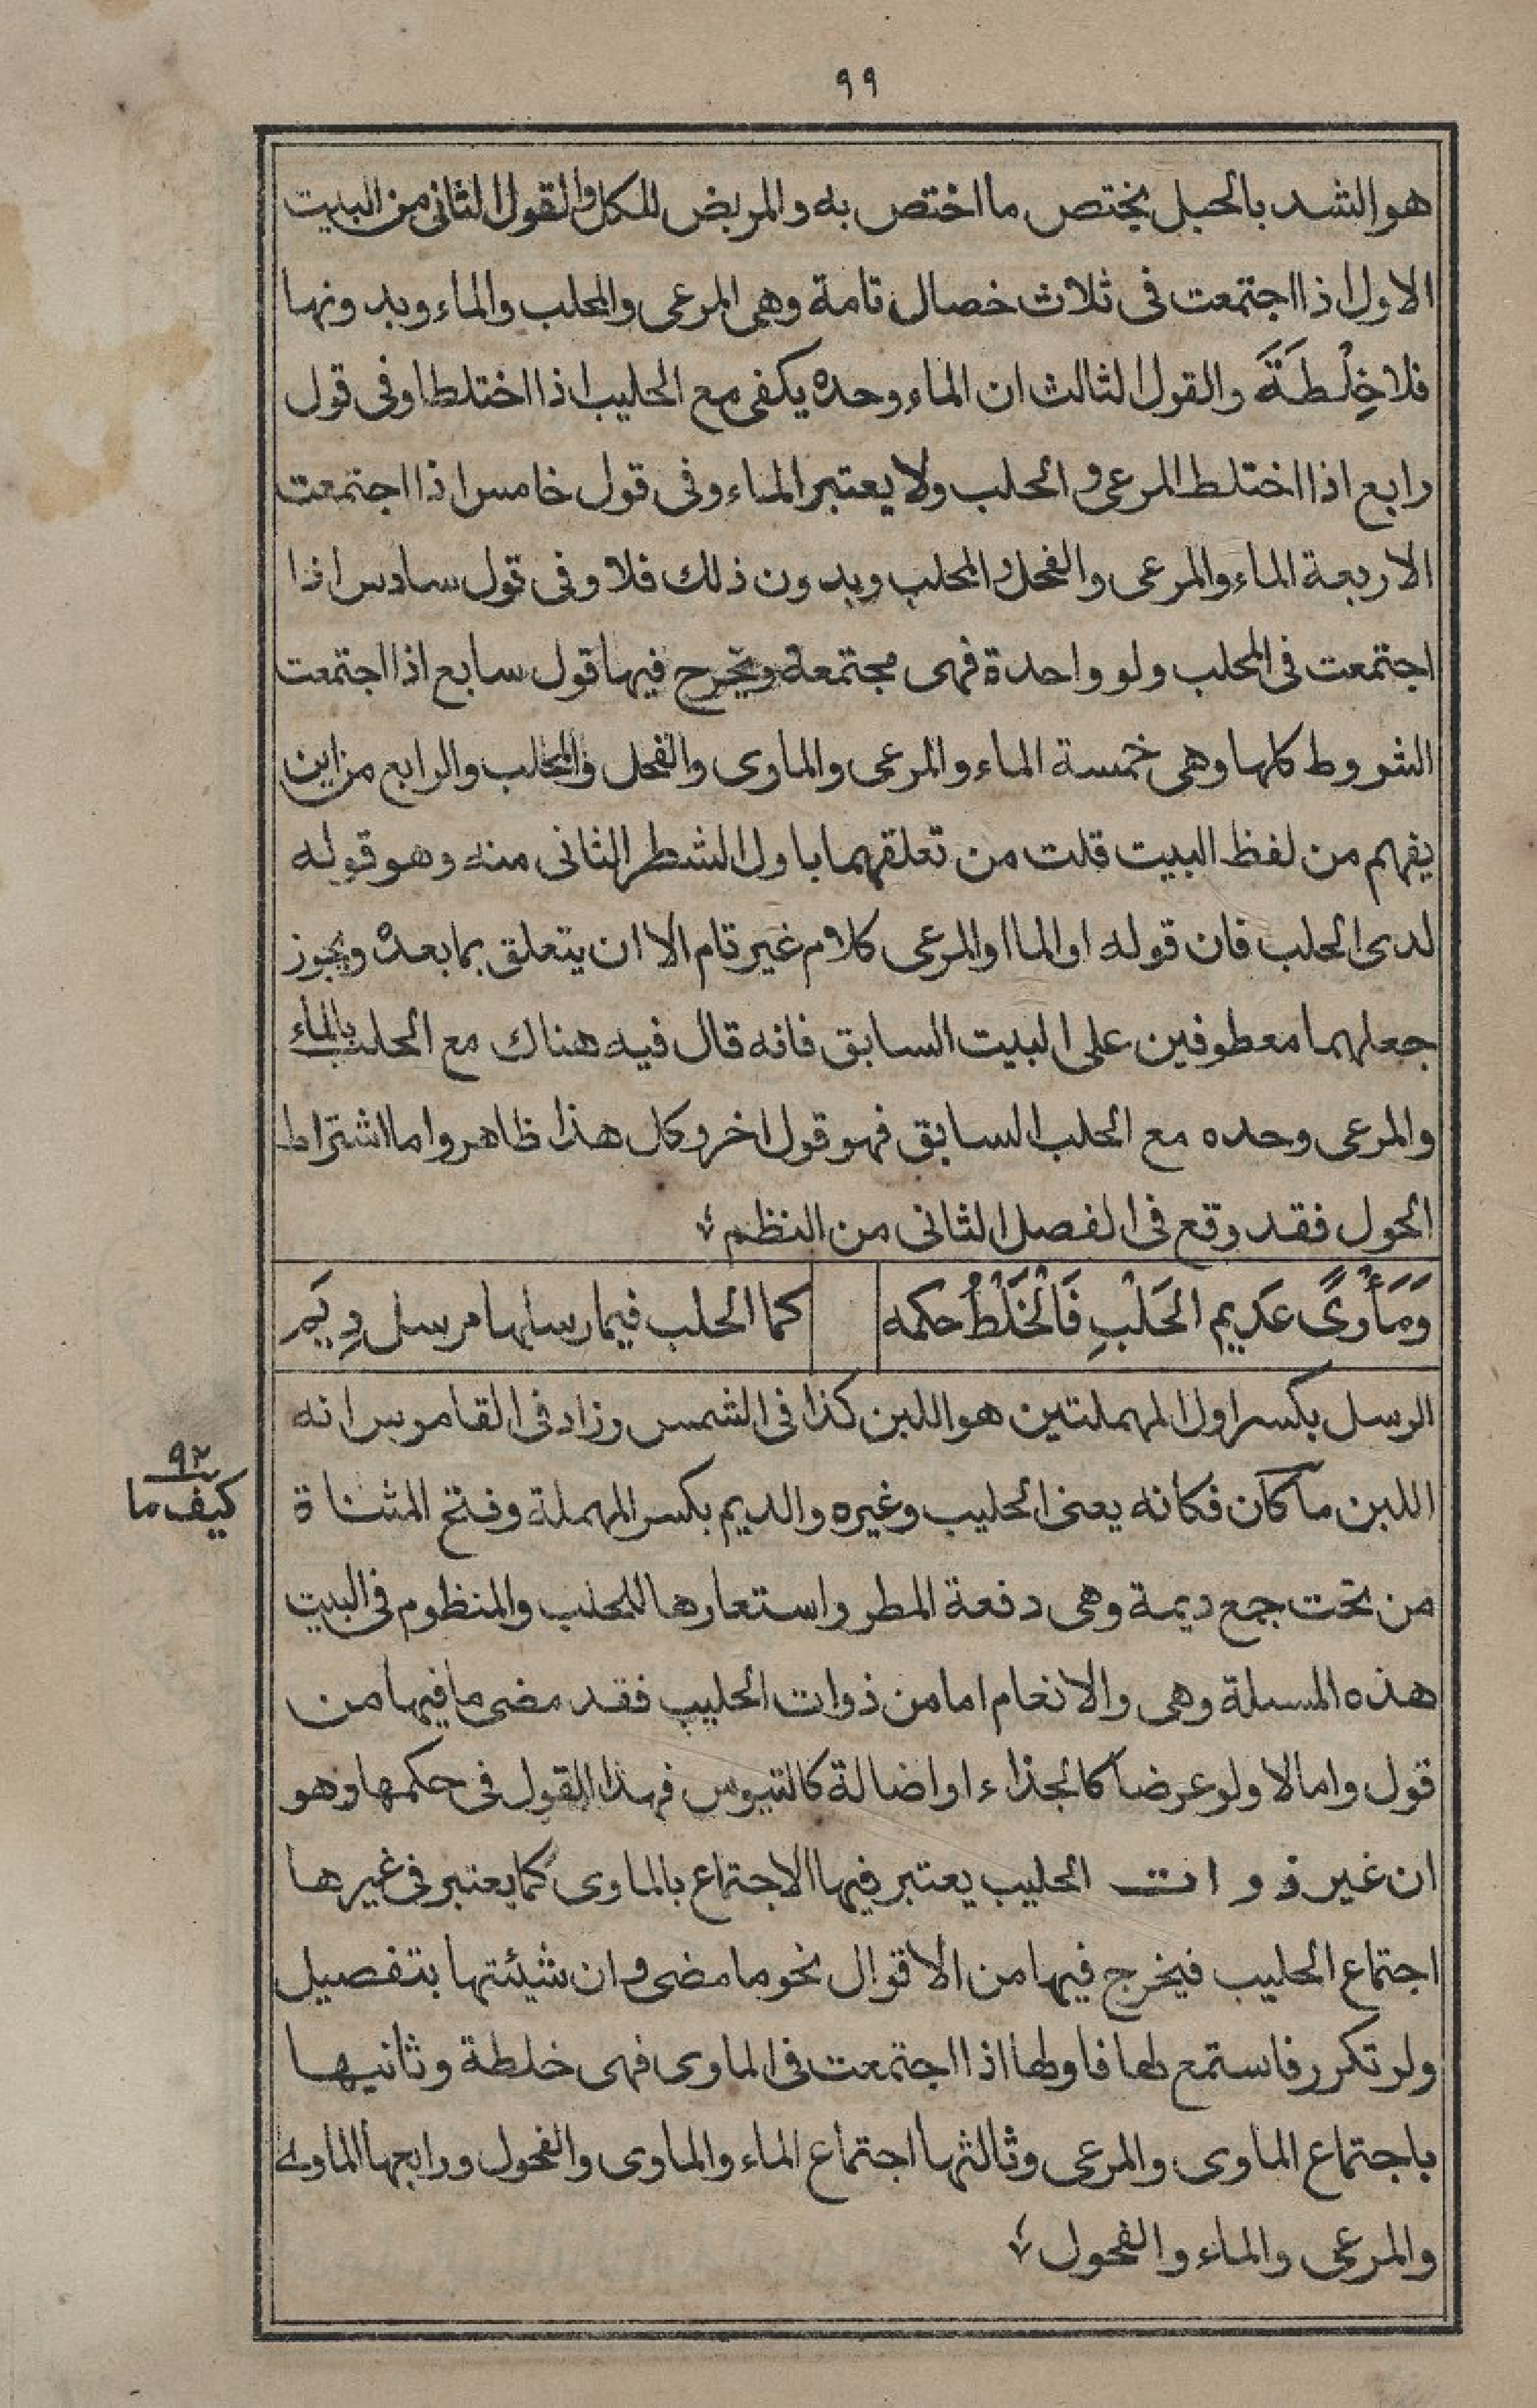 ٩٩
هو الشد بالحبل يختص ما اختص به والمربض للكل والقول الثانى من البيت
الاول اذا اجتمعت فى ثلاث خصال تامة وهى المرعى والمحلب والماء وبدونها
فلا خِلْطَةَ والقول الثالث ان الماء وحده يكفى مع الحليب اذا اختلطا وفى قول
رابع اذا اختلط المرعى والحلب ولا يعتبر الماء وفى قول خامس اذا اجتمعت
الاربعة الماء والمرعى والفحل والمحلب وبدون ذلك فلا وفى قول سادس اذا
اجتمعت فى المحلب ولو واحدة فهى مجتمعة ويخرج فيها قول سابع اذا اجتمعت
الشروط كلها وهى خمسة الماء والمرعى والماوى والفحل والمحالب والرابع من اين
يفهم من لفظ البيت قلت من تعلقهما باول الشطر الثانى منه وهو قوله
لدى الحلب فان قوله او الماا والمرعى كلام غير تام الا ان يتعلق بما بعده ويجوز
جعلهما معطوفين على البيت السابق فانه قال فيه هناك مع الحلب بالماء
والمرعى وحده مع الحلب السابق فهو قول اخر وكل هذا ظاهر واما اشتراط
الحول فقد وقع فى الفصل الثانى من النظم
وَمَأْوىً عَدِيم الحَلْبِ فَالْخَلْطُ حكمه كما الحلب فيما رسلها مرسل دِيَم
الرسل بكسر اول المهملتين هو اللبن كذا فى الشمس وزاد فى القاموس انه
اللبن ما كان فكانه يعنى الحليب وغيره والديم بكسر المهملة وفتح المثناة
٩٢
كيف ما
من تحت جمع ديمة وهى دفعة المطر واستعارها للمحلب والمنظوم فى البيت
هذه المسئلة وهى والانعام اما من ذوات الحليب فقد مضى ما فيها من
قول واما لا ولو عرضا كالجذاء او اضالة كالتيوس فهذا القول فى حكمها وهو
ان غير ذوات الحليب يعتبر فيها الاجتماع بالماوى كما يعتبر فى غيرها
اجتماع الحليب فيخرج فيها من الاقوال نحو ما مضى وان شيئتها بتفصيل
ولو تكرر فاستمع لها فاولها اذا اجتمعت فى الماوى فهى خلطة وثانيها
باجتماع الماوى والمرعى وثالثها اجتماع الماء والماوى والفحول ورابعها الماوى
والمرعى والماء والفحول